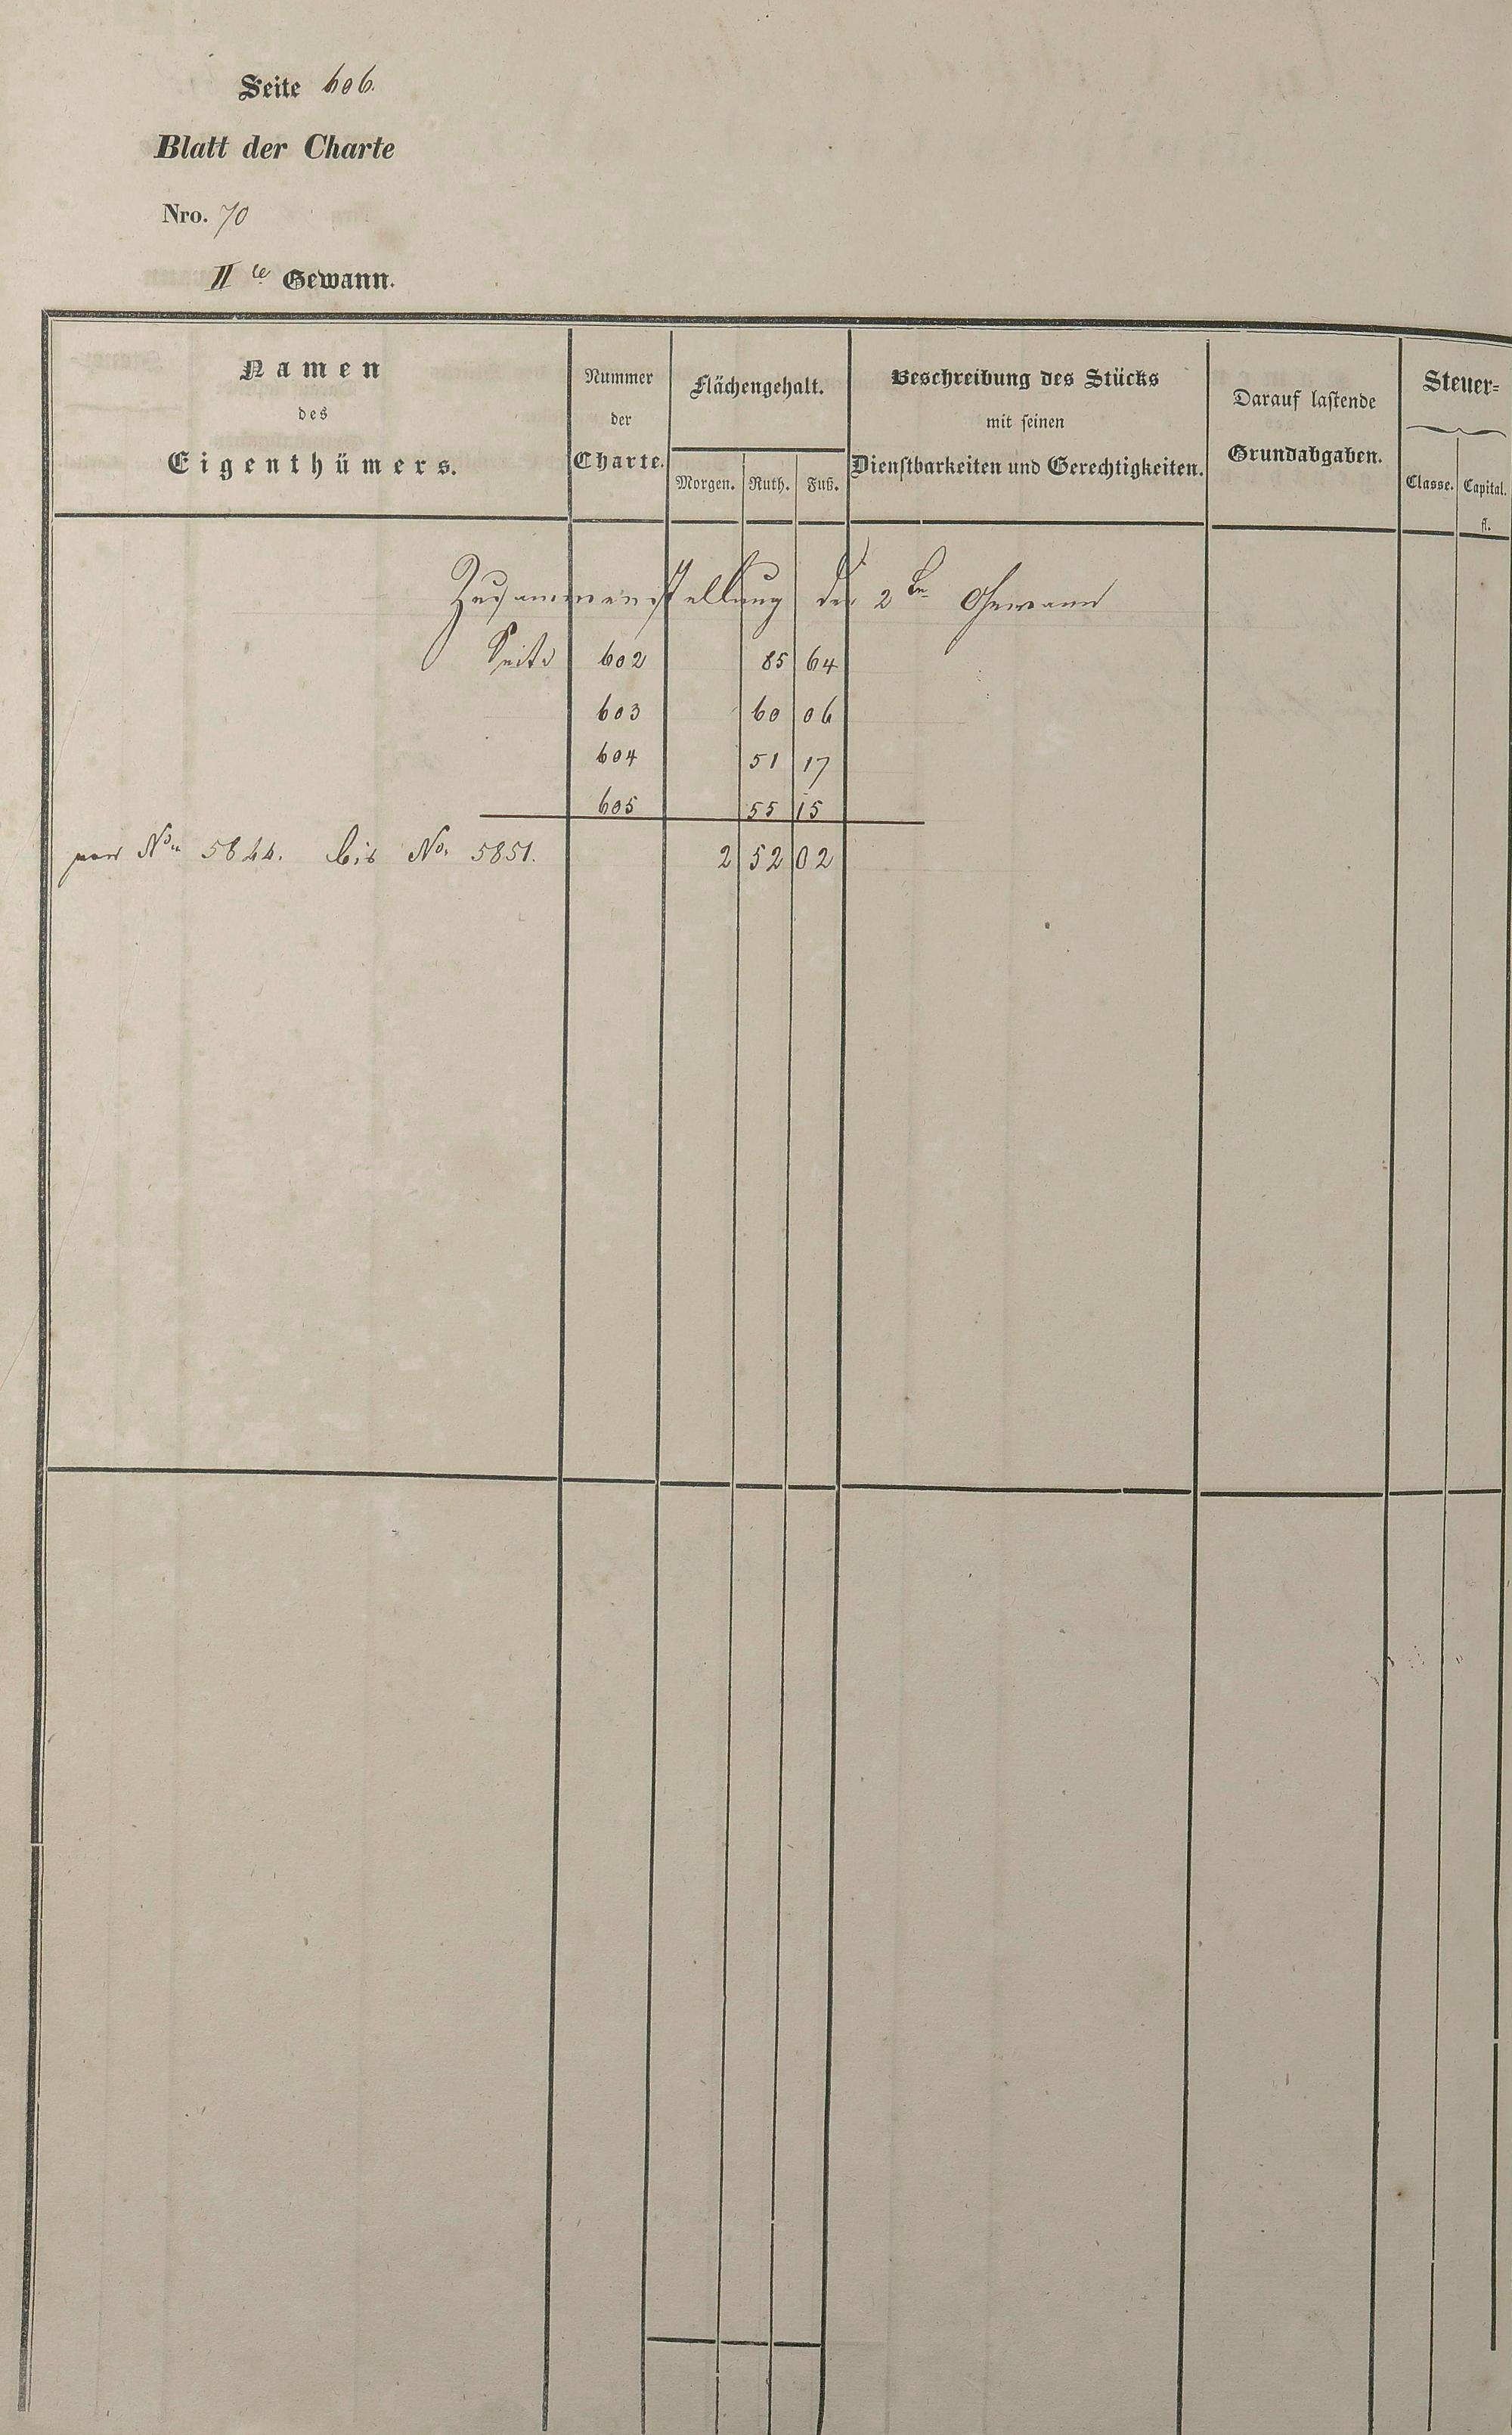 Seite 606.
Blatt der Charte
Nro. 70
II te Gewann.
Namen
des
Eigenthümers.
Nummer
der
Charte.
Flächengehalt.
Morgen. Ruth. Fuß.
Beschreibung des Stücks
mit seinen
Dienstbarkeiten und Gerechtigkeiten.
Darauf lastende
Grundabgaben.
Steuer=
Classe. Capital.
fl.
Zusammenstellung der 2ten Gewann
Seite 602 85 64
603 60 06
604 51 17
605 55 15
von No. 5844. bis No. 5851. 2 52 02